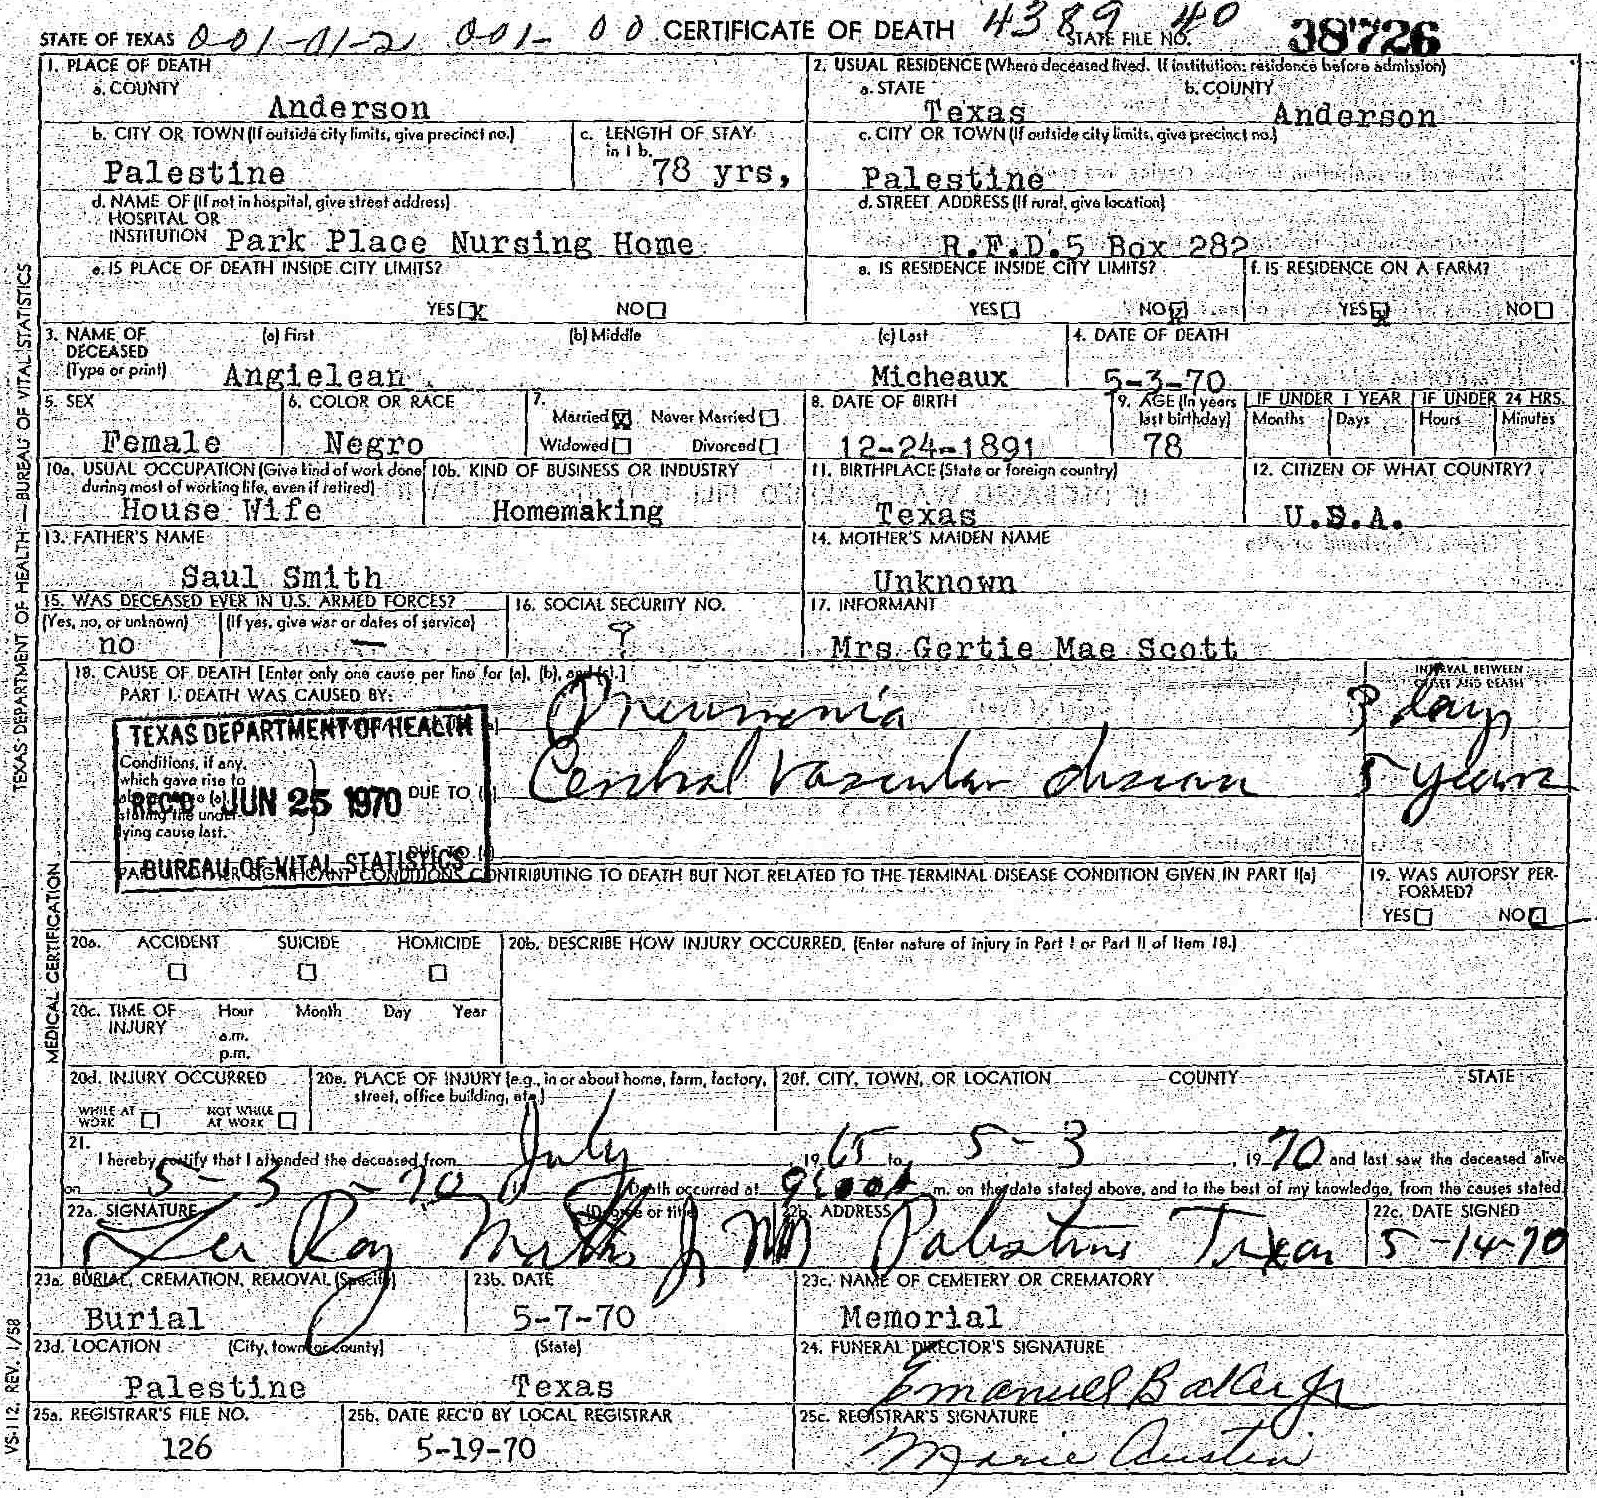 STATE OF TEXAS 001-01-21 001- 00 CERTIFICATE OF DEATH 4389 40 STATE FILE NO. 38726
1. PLACE OF DEATH
a. COUNTY
Anderson
2. USUAL RESIDENCE (Where deceased lived. If institution: residence before admission)
a. STATE b. COUNTY
Texas Anderson
b. CITY OR TOWN (If outside city limits, give precinct no.)
Palestine
c. LENGTH OF STAY
in 1 b.
78 yrs,
c. CITY OR TOWN (If outside city limits, give precinct no.)
Palestine
d. NAME OF (If not in hospital, give street address)
HOSPITAL OR
INSTITUTION Park Place Nursing Home
d. STREET ADDRESS (If rural, give location)
R.F.D.5 Box 282
e. IS PLACE OF DEATH INSIDE CITY LIMITS?
YES x NO
e. IS RESIDENCE INSIDE CITY LIMITS?
YES NO x
f. IS RESIDENCE ON A FARM?
YES x NO
3. NAME OF
DECEASED
(Type or print)
(a) First (b) Middle (c) Last
Angielean Micheaux
4. DATE OF DEATH
5-3-70
5. SEX
Female
6. COLOR OR RACE
Negro
7.
Married x Never Married
Widowed Divorced
8. DATE OF BIRTH
12-24-1891
9. AGE (In years
last birthday)
78
IF UNDER 1 YEAR IF UNDER 24 HRS.
Months Days Hours Minutes
10a. USUAL OCCUPATION (Give kind of work done
during most of working life, even if retired)
House Wife
10b. KIND OF BUSINESS OR INDUSTRY
Homemaking
11. BIRTHPLACE (State or foreign country)
Texas
12. CITIZEN OF WHAT COUNTRY?
U.S.A.
13. FATHER'S NAME
Saul Smith
14. MOTHER'S MAIDEN NAME
Unknown
15. WAS DECEASED EVER IN U.S. ARMED FORCES?
(Yes, no, or unknown) (If yes, give war or dates of service)
no —
16. SOCIAL SECURITY NO.
?
17. INFORMANT
Mrs Gertie Mae Scott
18. CAUSE OF DEATH [Enter only one cause per line for (a), (b), and (c).]
PART I. DEATH WAS CAUSED BY:
INTERVAL BETWEEN
ONSET AND DEATH
Pneumonia 3 days
TEXAS DEPARTMENT OF HEALTH
Conditions, if any,
which gave rise to
stating the under
lying cause last.
REC'D JUN 25 1970
DUE TO
Cerebral vascular disease 5 years
DUE TO
BUREAU OF VITAL STATISTICS
SIGNIFICANT CONDITIONS CONTRIBUTING TO DEATH BUT NOT RELATED TO THE TERMINAL DISEASE CONDITION GIVEN IN PART I(a)
19. WAS AUTOPSY PER-
FORMED?
YES NO
20a. ACCIDENT SUICIDE HOMICIDE
20b. DESCRIBE HOW INJURY OCCURRED. (Enter nature of injury in Part I or Part II of Item 18.)
20c. TIME OF
INJURY
Hour Month Day Year
a.m.
p.m.
20d. INJURY OCCURRED
WHILE AT
WORK
NOT WHILE
AT WORK
20e. PLACE OF INJURY (e.g., in or about home, farm, factory,
street, office building, etc.)
20f. CITY, TOWN, OR LOCATION COUNTY STATE
21.
I hereby certify that I attended the deceased from July, 19 65 to 5-3, 19 70 and last saw the deceased alive
on 5-3-70 Death occurred at m. on the date stated above, and to the best of my knowledge, from the causes stated
22a. SIGNATURE (Degree or title)
22b. ADDRESS
Palestine Texas
22c. DATE SIGNED
5-14-70
23a. BURIAL, CREMATION, REMOVAL (Specify)
Burial
23b. DATE
5-7-70
23c. NAME OF CEMETERY OR CREMATORY
Memorial
23d. LOCATION (City, town or county) (State)
Palestine Texas
24. FUNERAL DIRECTOR'S SIGNATURE
Emanuel Baker Jr
25a. REGISTRAR'S FILE NO.
126
25b. DATE REC'D BY LOCAL REGISTRAR
5-19-70
25c. REGISTRAR'S SIGNATURE
Marie Austin
TEXAS DEPARTMENT OF HEALTH—BUREAU OF VITAL STATISTICS
MEDICAL CERTIFICATION
VS-112. REV. 1/58